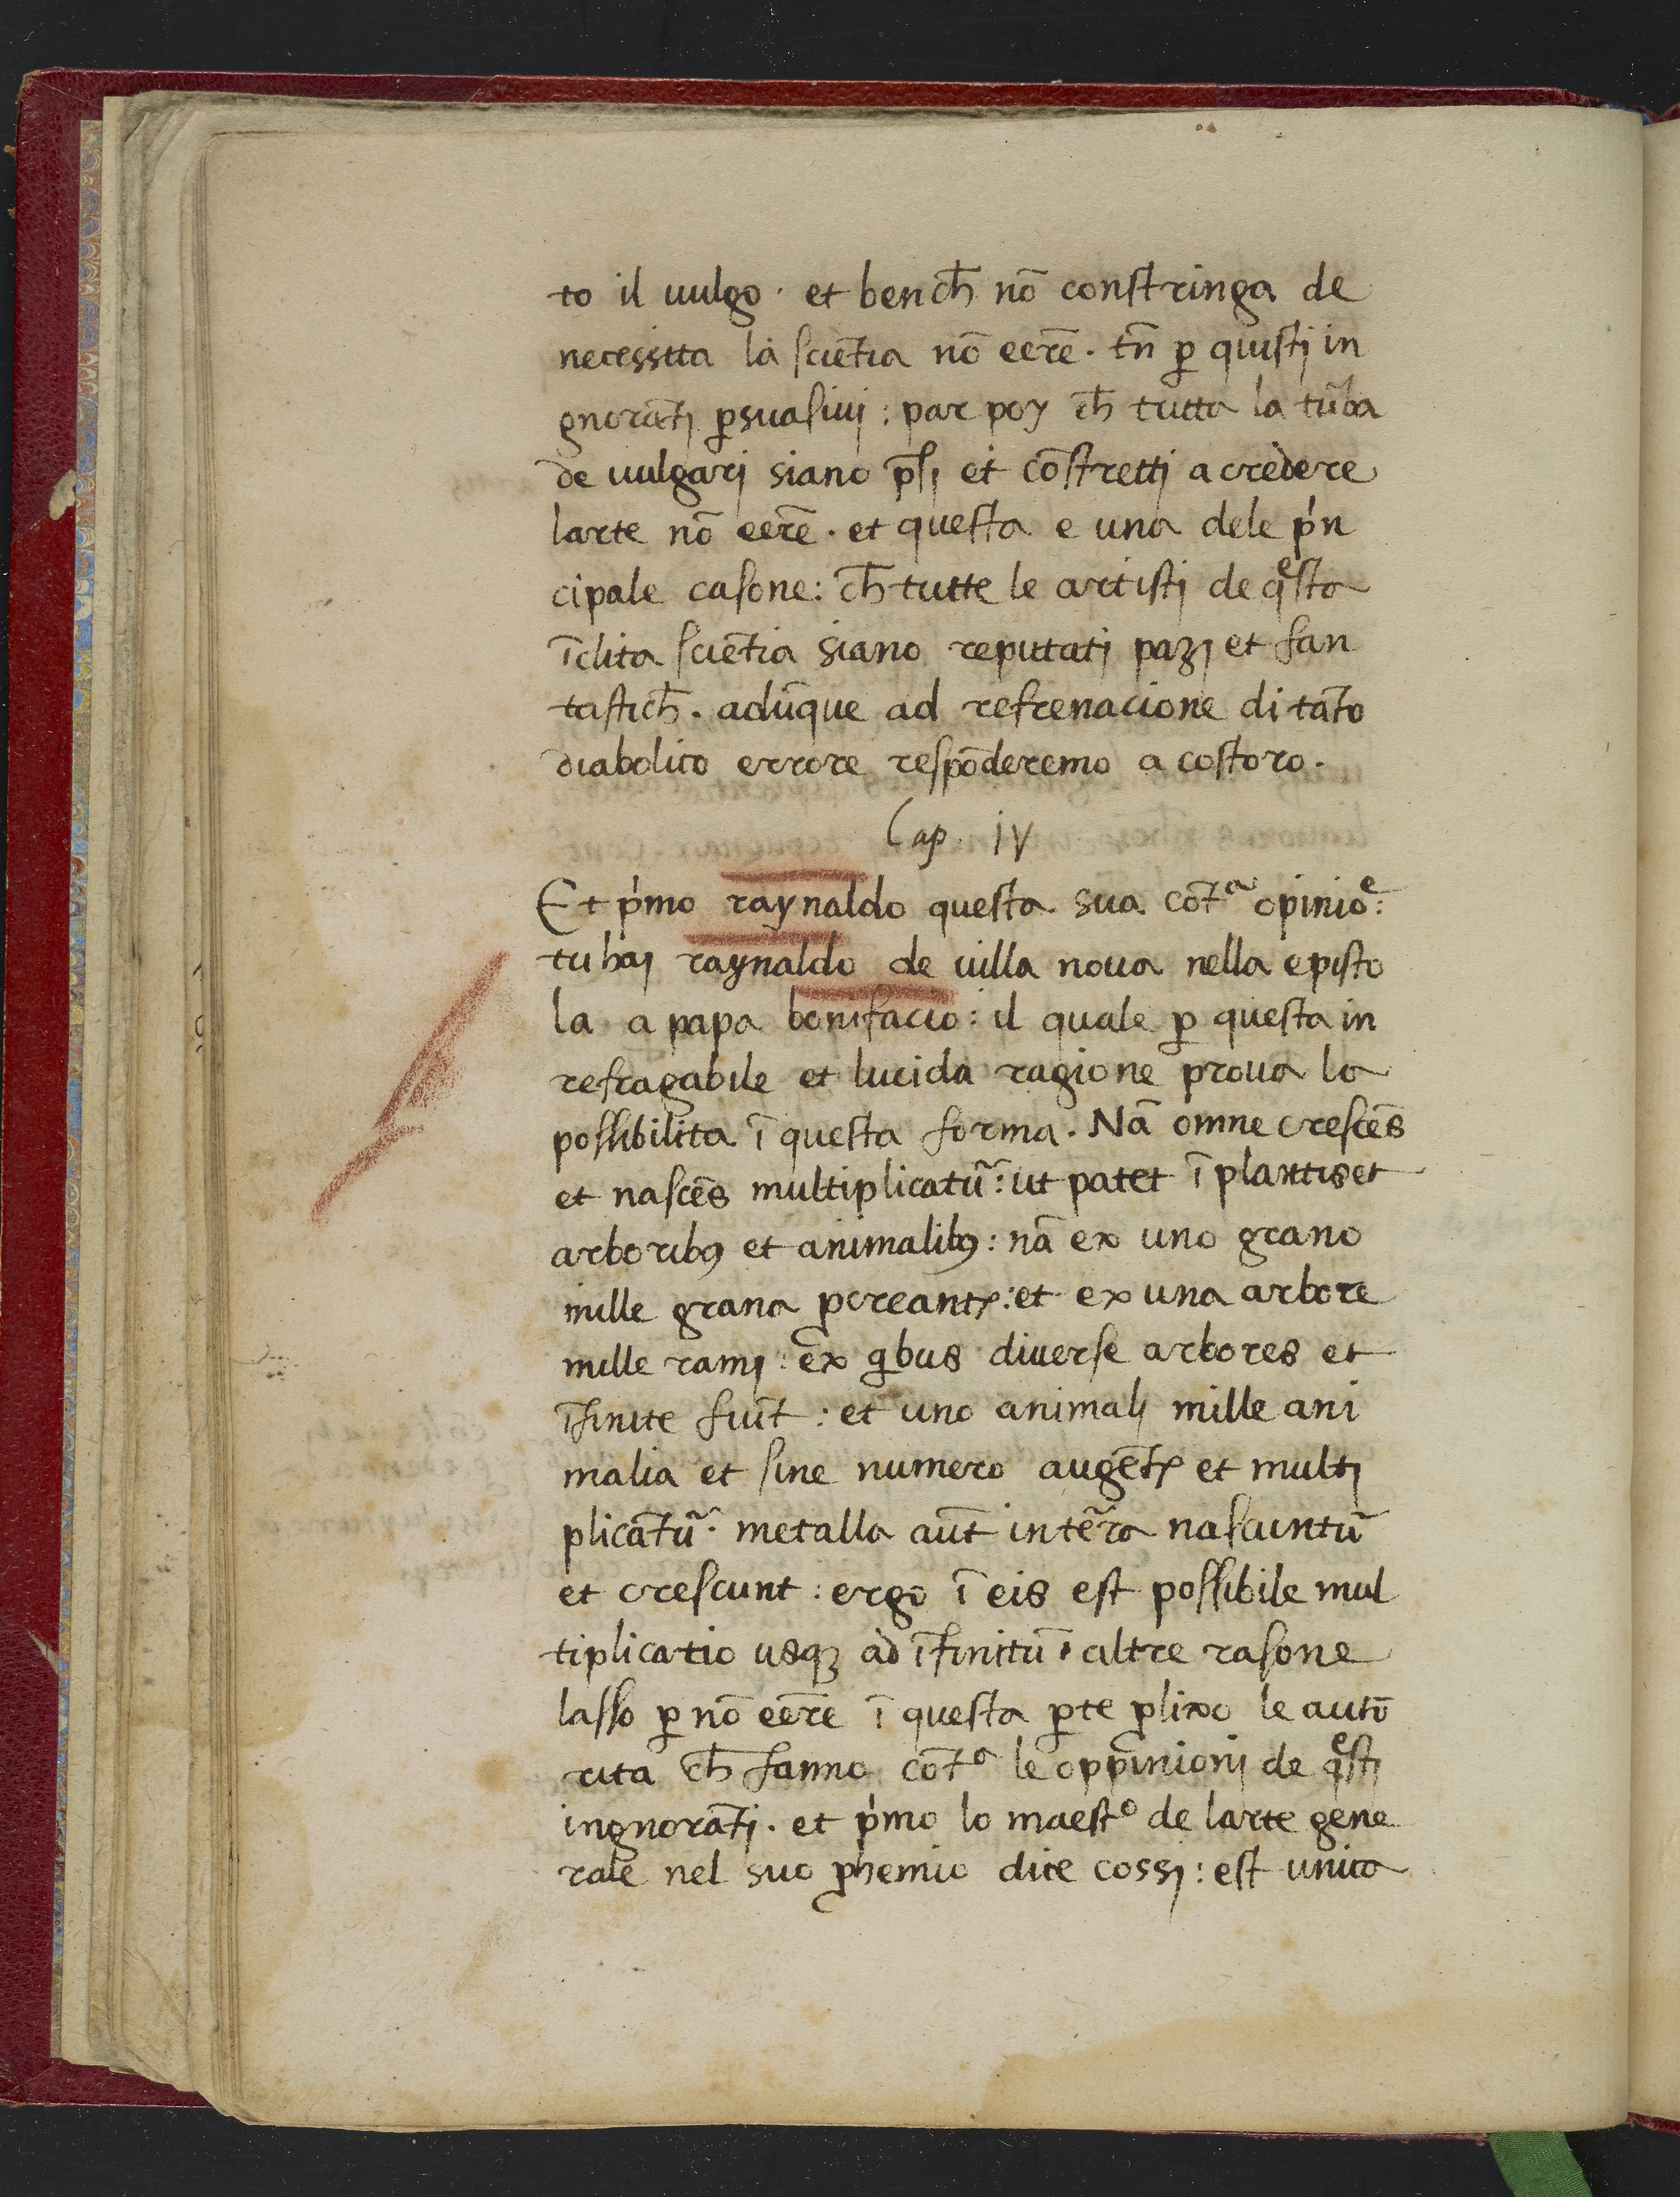 to il uulgo · et bench̄ nō conſtringa de
necessita la ſciētia nō eēre · tn̄ ꝑ quiſtj in
gnorātj ꝑſuaſiuj : par poy ch̄ tutta la tūba
de uulgarj siano p̄ſj et cōſtrettj a credere
larte nō eēre · et queſta e una dele p̍n
cipale caſone : ch̄ tutte le artiſtj de qͤſta
īclita ſciētia siano reputatj pazj et fan
taſtich̄ . adūque ad refrenacione di tāto
diabolico errore reſpōderemo a coſtoro .
Cap . iv
Et p̍mo raynaldo queſta sua cōtᵃ opinioͤ :
tu haj raynaldo de uilla noua nella epiſto
la a papa bonifacio : il quale ꝑ queſta in
refragabile et lucida ragione proua la
poſſibilita ī queſta forma . Nā omne creſcēs
et naſcēs multiplicatū : ut patet ī plantis et
arboribꝯ et animalibꝯ : nā ex uno grano
mille grana ꝓcreantꝛ : et ex una arbore
mille ramj : ex qͥbus diuerſe arbores et
īfinite fiūt : et uno animalj mille ani
malia et ſine numero augētꝛ et multj
plicātū . metalla aūt in tēra naſcuntū
et creſcunt : ergo ī eis eſt poſſibile mul
tiplicatio usqꝫ ad īfinitū . altre raſone
laſſo ꝑ nō eēre ī queſta ꝑte ꝓlixo le auto
rita ch̄ fanno cōtᵃ le oppinionj de qͤſtj
ingnorātj . et p̍mo lo maeſtᵒ de larte gene
rale nel suo ꝓhemio dice cossj : eſt unica